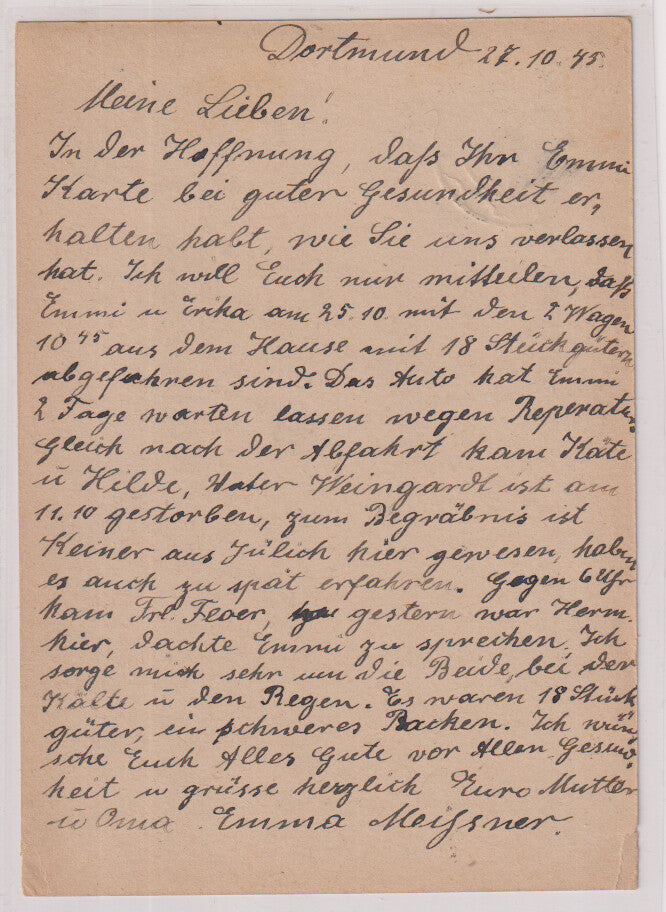 Dortmund 27.10.45.
Meine Lieben!
In der Hoffnung, daß Ihr Emmi
Karte bei guter Gesundheit er,
halten habt, wie Sie uns verlassen
hat. Ich will Euch nur mitteilen, daß
Emmi u Erika am 25.10. mit den 2 Wagen
10 45 aus dem Hause mit 18 Stückgütern
abgefahren sind. Das Auto hat Emmi
2 Tage warten lassen wegen Reperatur.
Gleich nach der Abfahrt kam Käte
u Hilde, Vater Weingardt ist am
11.10 gestorben, zum Begräbnis ist
Keiner aus Jülich hier gewesen, haben
es auch zu spät erfahren. Gegen 6 Uhr
kam Frl. gestern war Herm.
hier, dachte Emmi zu sprechen. Ich
sorge mich sehr um die Beide, bei der
Kälte u den Regen. Es waren 18 Stück
güter, ein schweres Packen. Ich wün
sche Euch Alles Gute vor Allen Gesund
heit u grüsse herzlich Eure Mutter
u Oma. Emma Meißner.